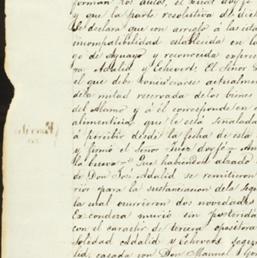 forman los autos, el cual dvo fu
y que la parte resolutiva de dict
Se declara que con arreglo á las citas
incompatibilidad establecida en lo
go de Aguayo y reconocida espres
ra Adalid y Echevers: El Señor
el que debe considerarse actualmen
de la mitad reservada de los bienes
del Alamo y á él corresponde en
alimenticia que le está señalada
á perito desde la fecha de esta
y firmó el Señor Juez doy fé = An
la Cueva = Que habiendose alzado
de Don José Adalid se remitieron
rior para la sustanciacion de la segu
la cual ocurrieron dos novedades
Ex-condesa murió sin posterida
con el caracter de tercera opositora
Soledad Adalid y Echevers segun
lid, casada con Don Manuel Gon